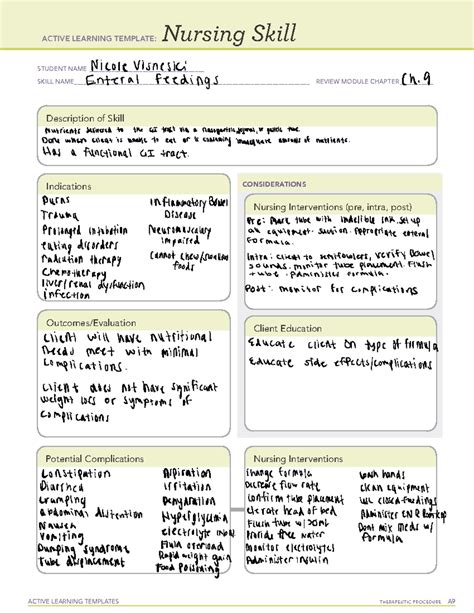 ACTIVE LEARNING TEMPLATE: Nursing Skill
STUDENT NAME Nicole Visneski
SKILL NAME Enteral Feedings REVIEW MODULE CHAPTER Ch. 9
Description of Skill
Nutrients delivered to the GI tract via a nasogastric, jejunal, or gastric tube.
Done when client is unable to eat or is consuming inadequate amounts of nutrients.
Has a functional GI tract.
Indications
Burns
Trauma
Prolonged intubation
eating disorders
Radiation therapy
Chemotherapy
liver/renal dysfunction
infection
Inflammatory Bowel
Disease
Neuromuscular
impaired
Cannot chew/swallow
foods
CONSIDERATIONS
Nursing Interventions (pre, intra, post)
Pre: Mark tube with indelible ink. set up
equipment. suction. Appropriate enteral
Formula.
Intra: client to semifowlers, verify Bowel
sounds. monitor tube placement. Flush
tube. Administer formula.
Post: monitor for complications
Outcomes/Evaluation
Client will have nutritional
needs meet with minimal
complications.
Client does not have significant
weight loss or symptoms of
complications
Client Education
Educate client on type of formula
Educate side effects/complications
Potential Complications
Constipation
Diarrhea
Cramping
Abdominal distention
Nausea
Vomiting
Dumping syndrome
Tube displacement
Aspiration
Irritation
Dehydration
Hyperglycemia
electrolyte
Fluid overload
Rapid weight gain
Food Poisoning
Nursing Interventions
Change formula
Decrease flow rate
Confirm tube placement
elevate head of bed
Flush tube w/ 30mL
Provide free water
Monitor electrolytes
Administer insulin
wash hands
clean equipment
use closed feedings
Administer
Dont mix meds w/
formula
ACTIVE LEARNING TEMPLATES
THERAPEUTIC PROCEDURE A9